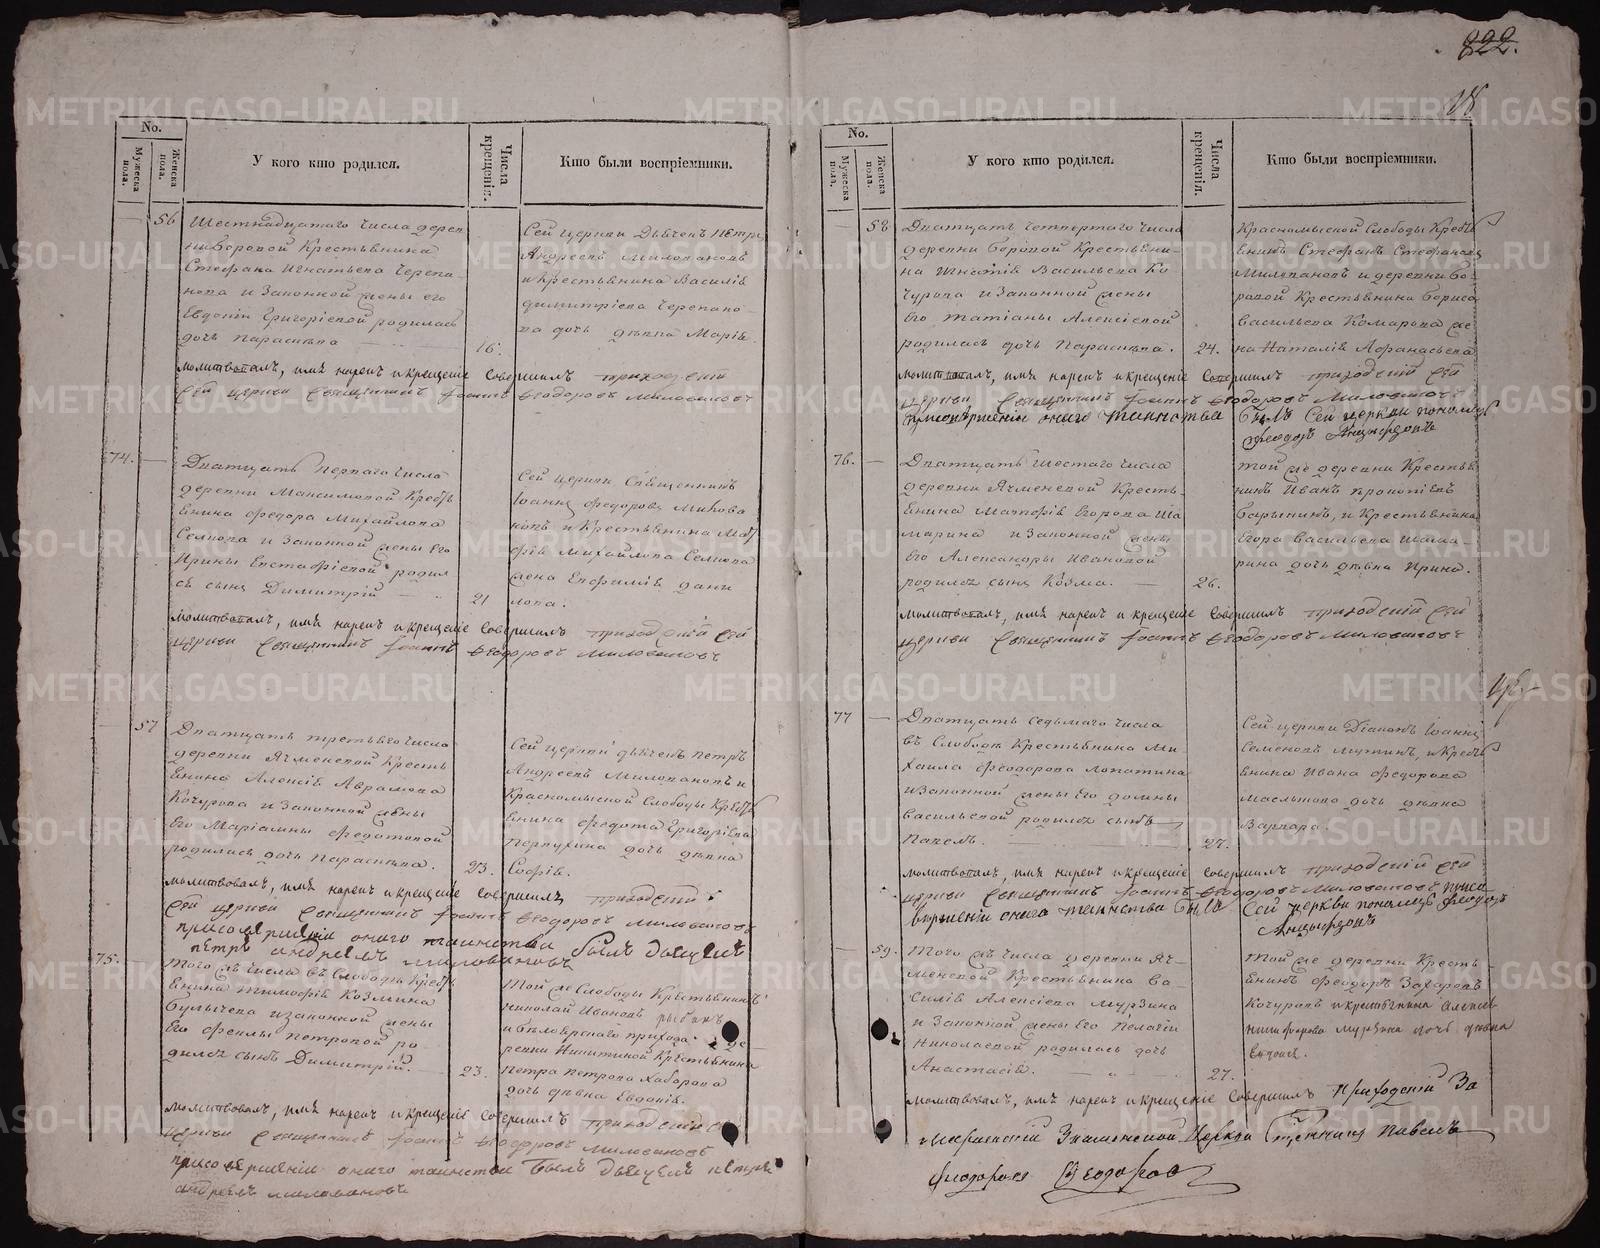 822.
18
No.
Мужеска пола.
Женска пола.
У кого кто родился.
Числа крещенія.
Кто были воспріемники.
56
Шестнадцатаго числа дерев
ни Боровой Крестьянина
Стефана Игнатьева Черепа-
нова и законной жены его
Евдокіи Григоріевой родилась
дочь Параскева
16.
Сей церкви Дьячекъ Петръ
Андреевъ Миловановъ
и крестьянина Василія
Димитріева Черепано-
ва дочь девка Марія.
молитвовалъ, имя нарекъ и крещеніе совершилъ приходскій
сей церкви священникъ Іоаннъ Феодоровъ Миловановъ
74.
Дватцать перваго числа
деревни Максимовой Кресть
янина Федора Михайлова
и законной жены его
Ирины Евстафіевой родил
ся сынъ Димитрій
21
Сей церкви священникъ
Іоаннъ Федоровъ Милова
новъ и Крестьянина
Михайлова
жена Данилова.
молитвовалъ, имя нарекъ и крещеніе совершилъ приходскій сей
церкви священникъ Іоаннъ Феодоровъ Миловановъ
57
Дватцать третьяго числа
деревни Ячменевой Кресть
янина Алексія Аврамова
Кочурова и законной жены
его Маріамны Федотовой
родилась дочь Параскева.
23.
Сей церкви дьячекъ Петръ
Андреевъ Миловановъ и
Красномыской Слободы Кресть
янина Федота Григоріева
дочь девка
Софія.
молитвовалъ, имя нарекъ и крещеніе совершилъ приходскій
сей церкви священникъ Іоаннъ Феодоровъ Миловановъ
при совершеніи онаго таинства былъ дьячекъ
Петръ Андреевъ Миловановъ
75.
Того жъ числа въ Слободе Кресть
янина Тимофія Козмина
Булычева и законной жены
его Феклы Петровой ро-
дился сынъ Димитрій.
23.
Той же Слободы Крестьянинъ
Николай Ивановъ
и Белоярскаго прихода де-
ревни Никитиной Крестьянина
Петра Петрова Хабарова
дочь девка Евдокія.
молитвовалъ, имя нарекъ и крещеніе совершилъ приходскій сей
церкви священникъ Іоаннъ Феодоровъ Миловановъ
при совершеніи онаго таинства былъ дьячекъ Петръ
Андреевъ Миловановъ
No.
Мужеска пола.
Женска пола.
У кого кто родился.
Числа крещенія.
Кто были воспріемники.
58
Дватцать четвертаго числа
деревни Боровой Крестьяни-
на Игнатія Васильева Ко
чурова и законной жены
его Татіаны Алексіевой
родилась дочь Параскева.
24.
Красномыской Слободы Кресть
янинъ Стефанъ Стефановъ
Миловановъ и деревни Бо-
ровой Крестьянина Бориса
Васильева Комарова же
на Наталія Афанасьева
молитвовалъ, имя нарекъ и крещеніе совершилъ приходскій сей
церкви священникъ Іоаннъ Феодоровъ Миловановъ
при совершеніи онаго таинства былъ сей церкви пономарь
Феодоръ Анцыферовъ
76.
Дватцать шестаго числа
деревни Ячменевой Кресть-
янина Матфія Егорова Ша
марина и законной жены
его Александры Ивановой
родился сынъ Козма.
26.
Той же деревни Кресть
нинъ Иванъ Прокопіевъ
Барынинъ, и Крестьянина
Егора Васильева Шама-
рина дочь девка Ирина.
молитвовалъ, имя нарекъ и крещеніе совершилъ приходскій сей
церкви священникъ Іоаннъ Феодоровъ Миловановъ
77
Дватцать седьмаго числа
въ Слободе Крестьянина Ми
хаила Феодорова Лопатина
и законной жены его Домны
Васильевой родился сынъ
Павелъ.
27.
Сей церкви Діаконъ Іоаннъ
Семеновъ и Кресть
янина Ивана Федорова
дочь девка
Варвара.
молитвовалъ, имя нарекъ и крещеніе совершилъ приходскій сей
церкви священникъ Іоаннъ Феодоровъ Миловановъ при со
вершеніи онаго таинства былъ сей церкви пономарь Феодоръ
Анцыферовъ
59.
Того жъ числа деревни Яч-
меневой Крестьянина Ва-
силія Алексіева Мурзина
и законной жены его Пелагіи
Николаевой родилась дочь
Анастасія.
27.
Той же деревни Кресть-
янинъ Феодоръ Захаровъ
Кочуровъ и крестьянина Алексея
Никифорова Мурзина дочь девка
молитвовалъ, имя нарекъ и крещеніе совершилъ приходскій
Знаменской церкви священникъ Павелъ
Феодоровъ